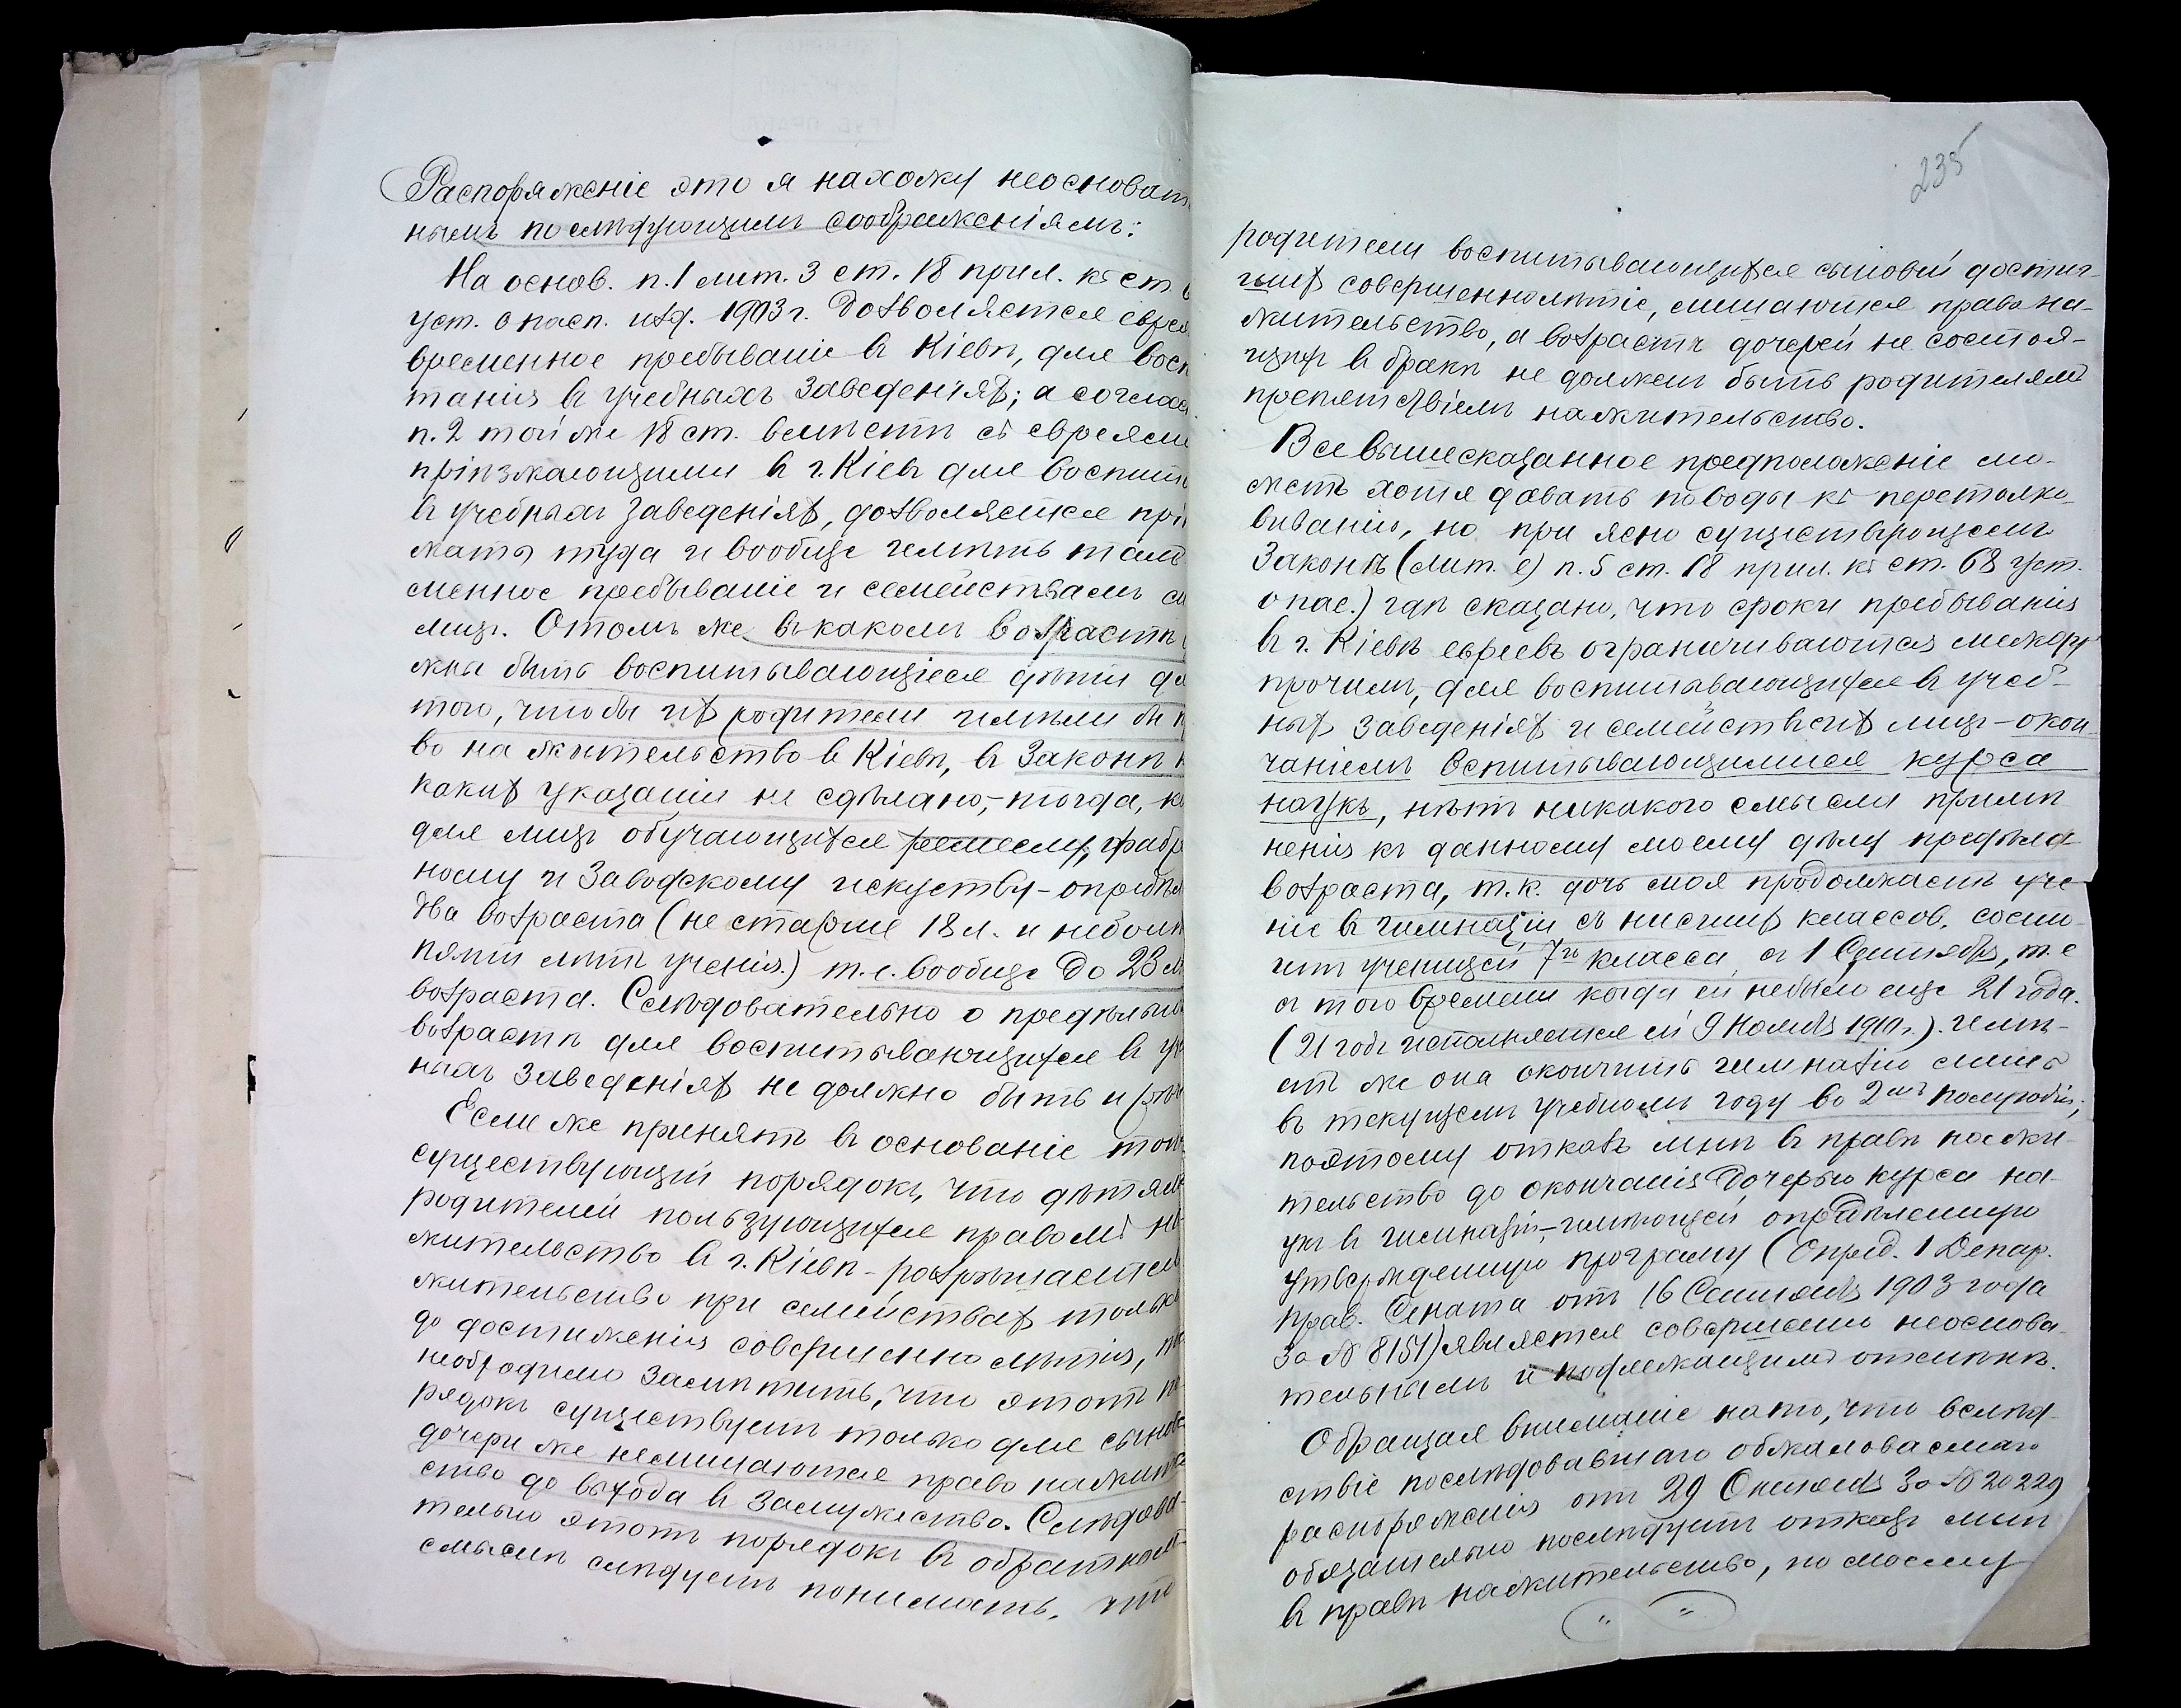 Распоряженіе это я нахожу неосноват
нымъ по слѣдующимъ соображеніямъ:
На основ. п. 1 лит. З ст. 18 прил. къ ст.
уст. о пасп. изд. 1903 г. дозволяется евре
временное пребываніе въ Кіевѣ, для восп
танія въ учебныхъ заведеніяхъ; а соглас
п. 2 той же 18 ст. вмѣстѣ съ евреями
пріѣзжающими въ г. Кіевъ для воспит
въ учебныхъ заведеніяхъ, дозволяется прі
жать туда и вообще имѣть там
менное пребываніе и семействамъ с
лицъ. О томъ же въ какомъ возрастѣ
жны быть воспитывающіеся дѣти дл
того, чтобы ихъ родители имѣли бы п
во на жительство в Кіевѣ, въ Законѣ н
какихъ указаній не сдѣлано,- тогда, к
для лицъ обучающихся ремеслу, фабр
ному и Заводскому искуству - опредѣл
два возраста (не старше 18 л. и неболѣ
пяти лѣтъ ученія.) т. е. вообще до 23 л
возраста. Слѣдовательно о предѣльн
возрастѣ для воспитывающихся въ уч
ныхъ заведеніяхъ не должно быть и рѣч
Если же принять въ основаніе тот
существующій порядокъ, что дѣтям
родителей пользующихся правомъ на
жительство въ г. Кіевѣ - разрѣшается
жительство при семействахъ только
до достиженія совершеннолѣтія, то
необходимо замѣтить, что этотъ по
рядокъ существуетъ только для сынов
дочери же нелишаются право нажител
ство до выхода въ замужество. Слѣдова-
тельно этотъ порядокъ въ обратномъ
смыслѣ слѣдуетъ понимать, что
235
родители воспитывающихся сыновей достиг-
шихъ совершеннолѣтіе, лишаются право на-
жительство, а возрастъ дочерей не состоя-
щихъ въ бракѣ не должен быть родителямъ
препятствіемъ нажительство.
Все вышесказанное предположеніе мо-
жетъ хотя давать поводы къ перетолко-
выванію, но при ясно существующемъ
Законѣ (лит. е) п. 5 ст. 18 прил. къ ст. 68 уст.
о пас.) гдѣ сказано, что сроки пребыванія
въ г. Кіевѣ евреевъ ограничиваются между
прочимъ, для воспитавающихся въ учеб-
ныхъ заведеніяхъ и семействъ ихъ лицъ - окон-
чаніемъ вспитывающимися курса
наукъ, нѣтъ никакого смысла примѣ
ненія къ данному моему дѣлу предѣла
возраста, т. к. дочь моя продолжаетъ уче-
ніе въ гимназіи съ нисшихъ классов, состо-
итъ ученицей 7го класса съ 1 Сентября, т. е
съ того времени когда ей небыло еще 21 года.
(21 годъ исполняется ей 9 Ноября 1910 г.). Имѣ-
етъ же она окончить гимназію лишь
въ текущемъ учебномъ году во 2мъ полугодіи;
поэтому отказъ мнѣ въ правѣ нажи-
тельство до окончанія дочерью курса на-
укъ въ гимназіи,- имѣющей опредѣленную
утвержденную програму (Опред. 1 Депар.
прав. Сената отъ 16 Сентября 1903 года
За № 8151) является совершенно неоснова-
тельнымъ и подлежащимъ отмѣнѣ.
Обращая вниманіе на то, что вслѣд-
ствіе послѣдовавшаго обжаловаемаго
распоряженія отъ 29 Октября За № 20229
обязательно послѣдуетъ отказъ мнѣ
въ правѣ нажительство, по моему